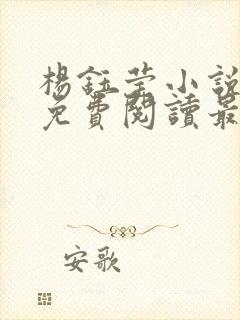 楊鈺瑩小說
免費閱讀最
安歌